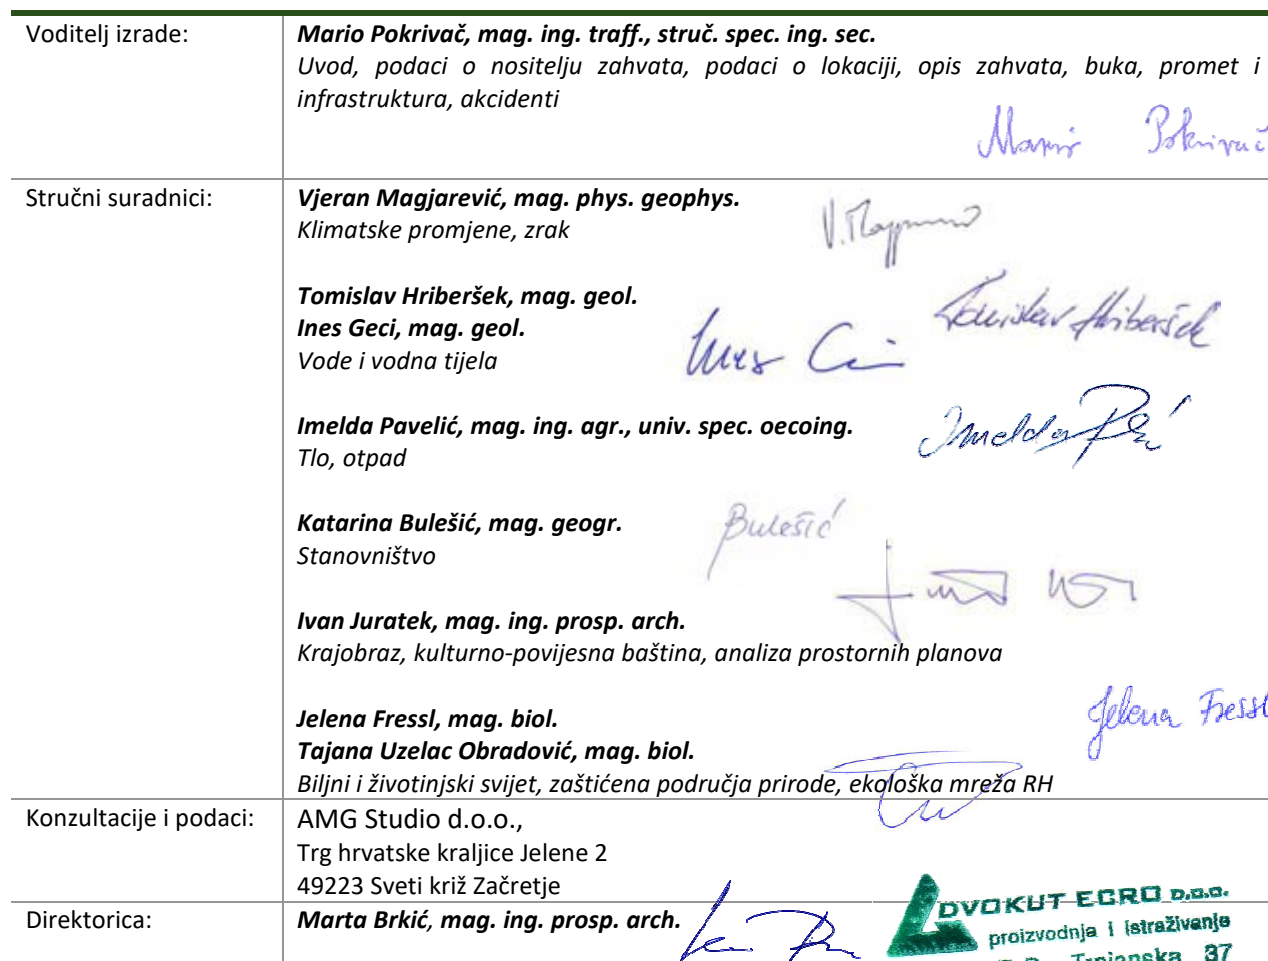 Voditelj izrade:
Mario Pokrivač, mag. ing. traff., struč. spec. ing. sec.
Uvod, podaci o nositelju zahvata, podaci o lokaciji, opis zahvata, buka, promet i
infrastruktura, akcidenti
Mario Pokrivač
Stručni suradnici:
Vjeran Magjarević, mag. phys. geophys.
Klimatske promjene, zrak
Tomislav Hriberšek, mag. geol.
Ines Geci, mag. geol.
Vode i vodna tijela
Tomislav Hriberšek
Ines
Imelda Pavelić, mag. ing. agr., univ. spec. oecoing.
Tlo, otpad
Imelda
Katarina Bulešić, mag. geogr.
Stanovništvo
Bulešić
Ivan Juratek, mag. ing. prosp. arch.
Krajobraz, kulturno-povijesna baština, analiza prostornih planova
Jelena Fressl, mag. biol.
Tajana Uzelac Obradović, mag. biol.
Biljni i životinjski svijet, zaštićena područja prirode, ekološka mreža RH
Jelena Fressl
Konzultacije i podaci:
AMG Studio d.o.o.,
Trg hrvatske kraljice Jelene 2
49223 Sveti križ Začretje
Direktorica:
Marta Brkić, mag. ing. prosp. arch.
DVOKUT ECRO D.O.O.
proizvodnja i istraživanje
Trnjanska 37